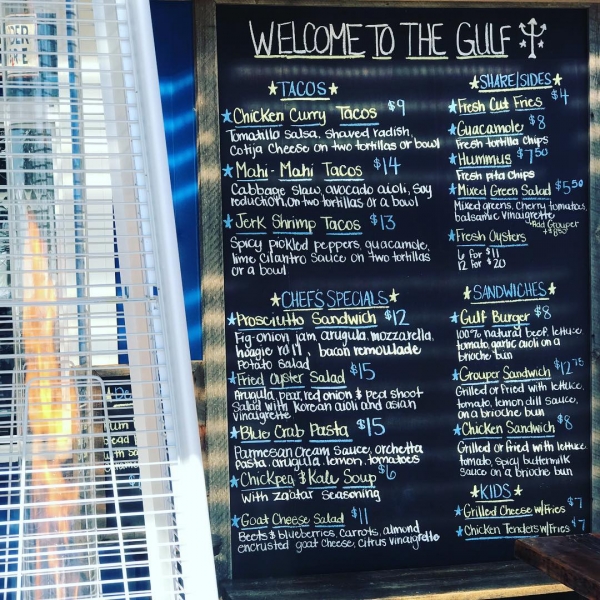 WELCOME TO THE GULF
TACOS
Chicken Curry Tacos $9
Tomatillo salsa, shaved radish,
Cotija Cheese on two tortillas or bowl
Mahi-Mahi Tacos $14
Cabbage slaw, avocado aioli, Soy
reduction, on two tortillas or a bowl
Jerk Shrimp Tacos $13
Spicy pickled peppers, guacamole,
lime cilantro sauce on two tortillas
or a bowl
CHEF'S SPECIALS
Prosciutto Sandwich $12
Fig-onion jam, arugula, mozzarella,
hoagie roll, bacon remoulade
Potato Salad
Fried Oyster Salad $15
Arugula, pear, red onion & pea shoot
Salad with Korean aioli and asian
vinaigrette
Blue Crab Pasta $15
Parmesan cream sauce, orchetta
pasta, arugula, lemon, tomatoes
Chickpea & Kale Soup $6
with za'atar seasoning
Goat Cheese Salad $11
Beets & blueberries, carrots, almond
encrusted goat cheese, citrus vinaigrette
SHARE/SIDES
Fresh Cut Fries $4
Guacamole $8
Fresh tortilla chips
Hummus $7.50
Fresh pita Chips
Mixed Green Salad $5.50
Mixed greens, Cherry tomatoes,
balsamic vinaigrette
Add Grouper
+$8.50
Fresh Oysters
6 for $11
12 for $20
SANDWICHES
Gulf Burger $8
100% natural beef, lettuce,
tomato, garlic aioli on a
brioche bun
Grouper Sandwich $12.75
Grilled or fried with lettuce,
tomato, lemon dill sauce,
on a brioche bun
Chicken Sandwich $8
Grilled or fried with lettuce
tomato, spicy buttermilk
sauce on a brioche bun
KIDS
Grilled Cheese w/Fries $7
Chicken Tenders w/Fries $7